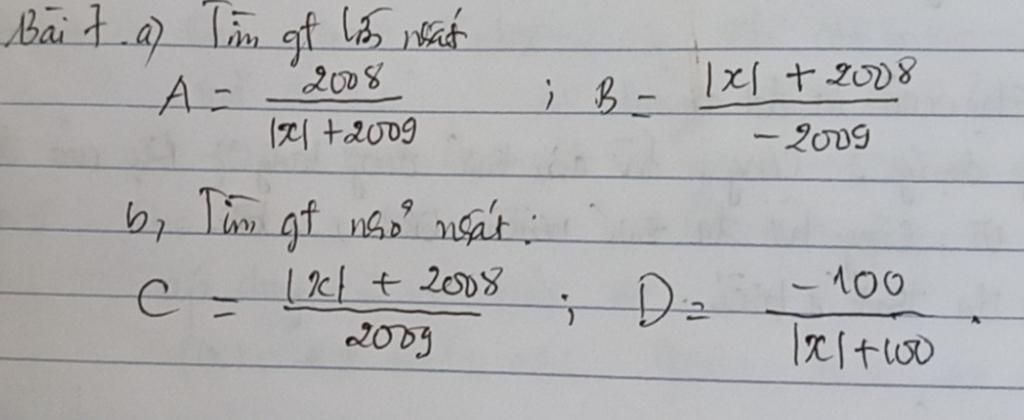 Bài 7. a) Tìm gt lớn nhất
A = 2008 / |x| + 2009 ; B = |x| + 2008 / - 2009
b, Tìm gt nhỏ nhất:
C = |x| + 2008 / 2009 ; D = - 100 / |x| + 100 .